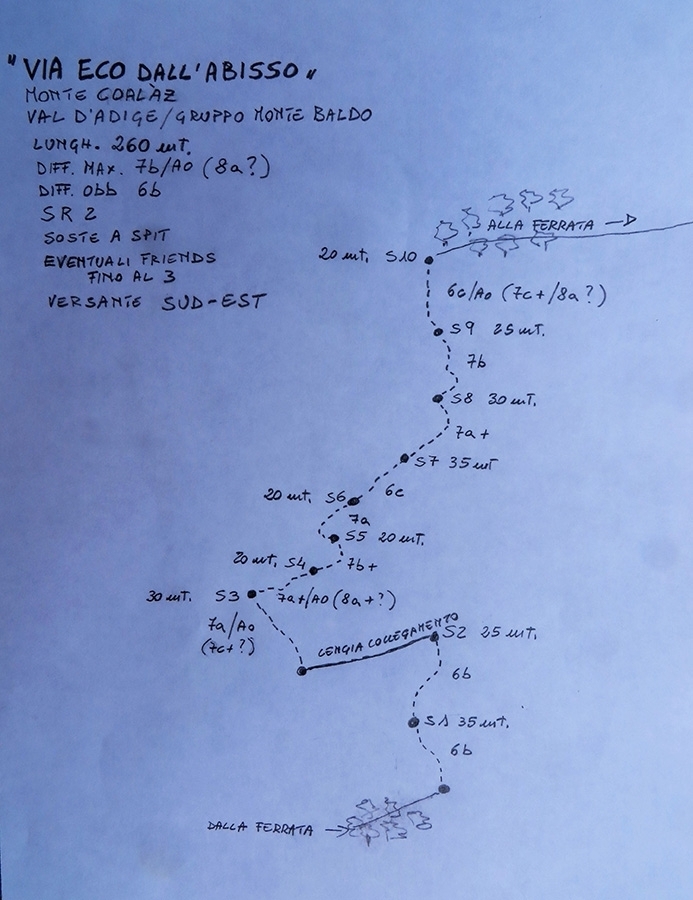 "VIA ECO DALL'ABISSO"
MONTE COALÀZ
VAL D'ADIGE/GRUPPO MONTE BALDO
LUNGH. 260 mt.
DIFF. MAX. 7b/A0 (8a?)
DIFF. Obb 6b
SR 2
SOSTE A SPIT
EVENTUALI FRIENDS
FINO AL 3
VERSANTE SUD-EST
ALLA FERRATA →
20 mt. S10
6c/A0 (7c+/8a?)
S9 25 mt.
7b
S8 30 mt.
7a+
S7 35 mt
6c
20 mt. S6
7a
S5 20 mt.
20 mt. S4
7b+
30 mt. S3
7a+/A0 (8a+?)
7a/A0
(7c+?)
CENGIA COLLEGAMENTO
S2 25 mt.
6b
S1 35 mt.
6b
DALLA FERRATA →